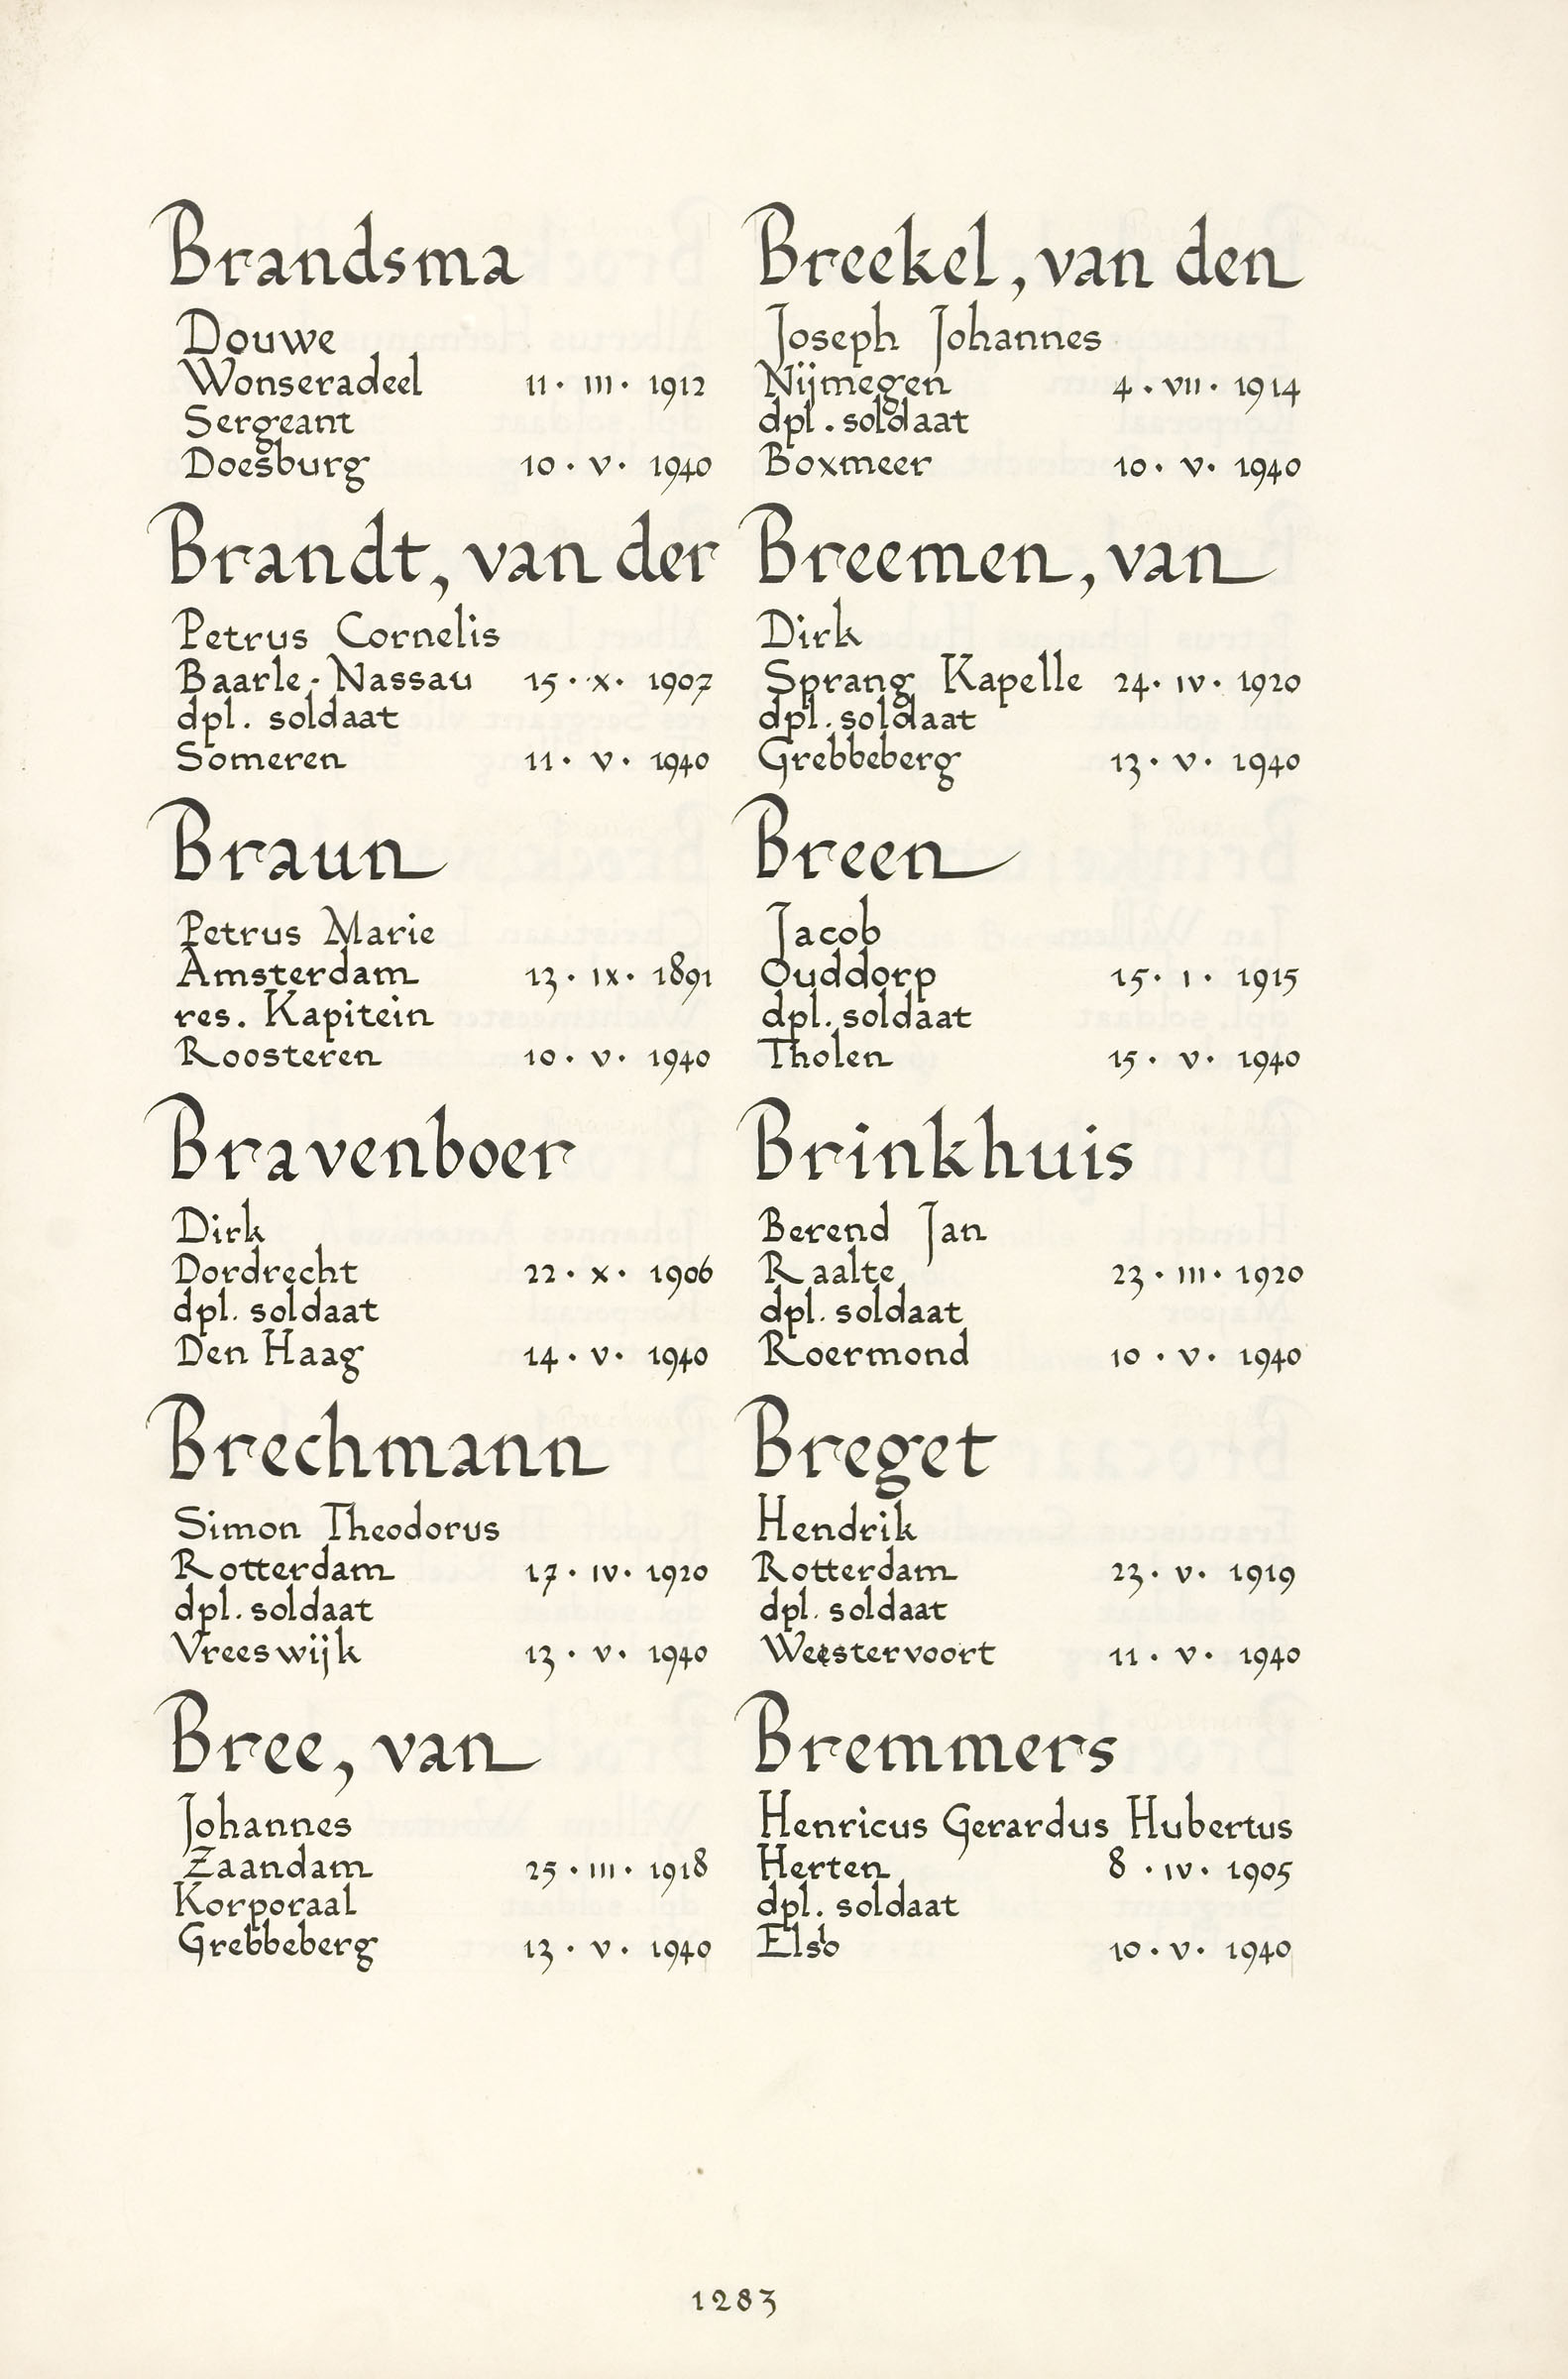 Brandsma
Douwe
Wonseradeel 11 · III · 1912
Sergeant
Doesburg 10 · V · 1940
Brandt, van der
Petrus Cornelis
Baarle-Nassau 15 · X · 1907
dpl. soldaat
Someren 11 · V · 1940
Braun
Petrus Marie
Amsterdam 13 · IX · 1891
res. Kapitein
Roosteren 10 · V · 1940
Bravenboer
Dirk
Dordrecht 22 · X · 1906
dpl. soldaat
Den Haag 14 · V · 1940
Brechmann
Simon Theodorus
Rotterdam 17 · IV · 1920
dpl. soldaat
Vreeswijk 13 · V · 1940
Bree, van
Johannes
Zaandam 25 · III · 1918
Korporaal
Grebbeberg 13 · V · 1940
Breekel, van den
Joseph Johannes
Nijmegen 4 · VII · 1914
dpl. soldaat
Boxmeer 10 · V · 1940
Breemen, van
Dirk
Sprang Kapelle 24 · IV · 1920
dpl. soldaat
Grebbeberg 13 · V · 1940
Breen
Jacob
Ouddorp 15 · I · 1915
dpl. soldaat
Tholen 15 · V · 1940
Brinkhuis
Berend Jan
Raalte 23 · III · 1920
dpl. soldaat
Roermond 10 · V · 1940
Breget
Hendrik
Rotterdam 23 · V · 1919
dpl. soldaat
Weestervoort 11 · V · 1940
Bremmers
Henricus Gerardus Hubertus
Herten 8 · IV · 1905
dpl. soldaat
10 · V · 1940
1283